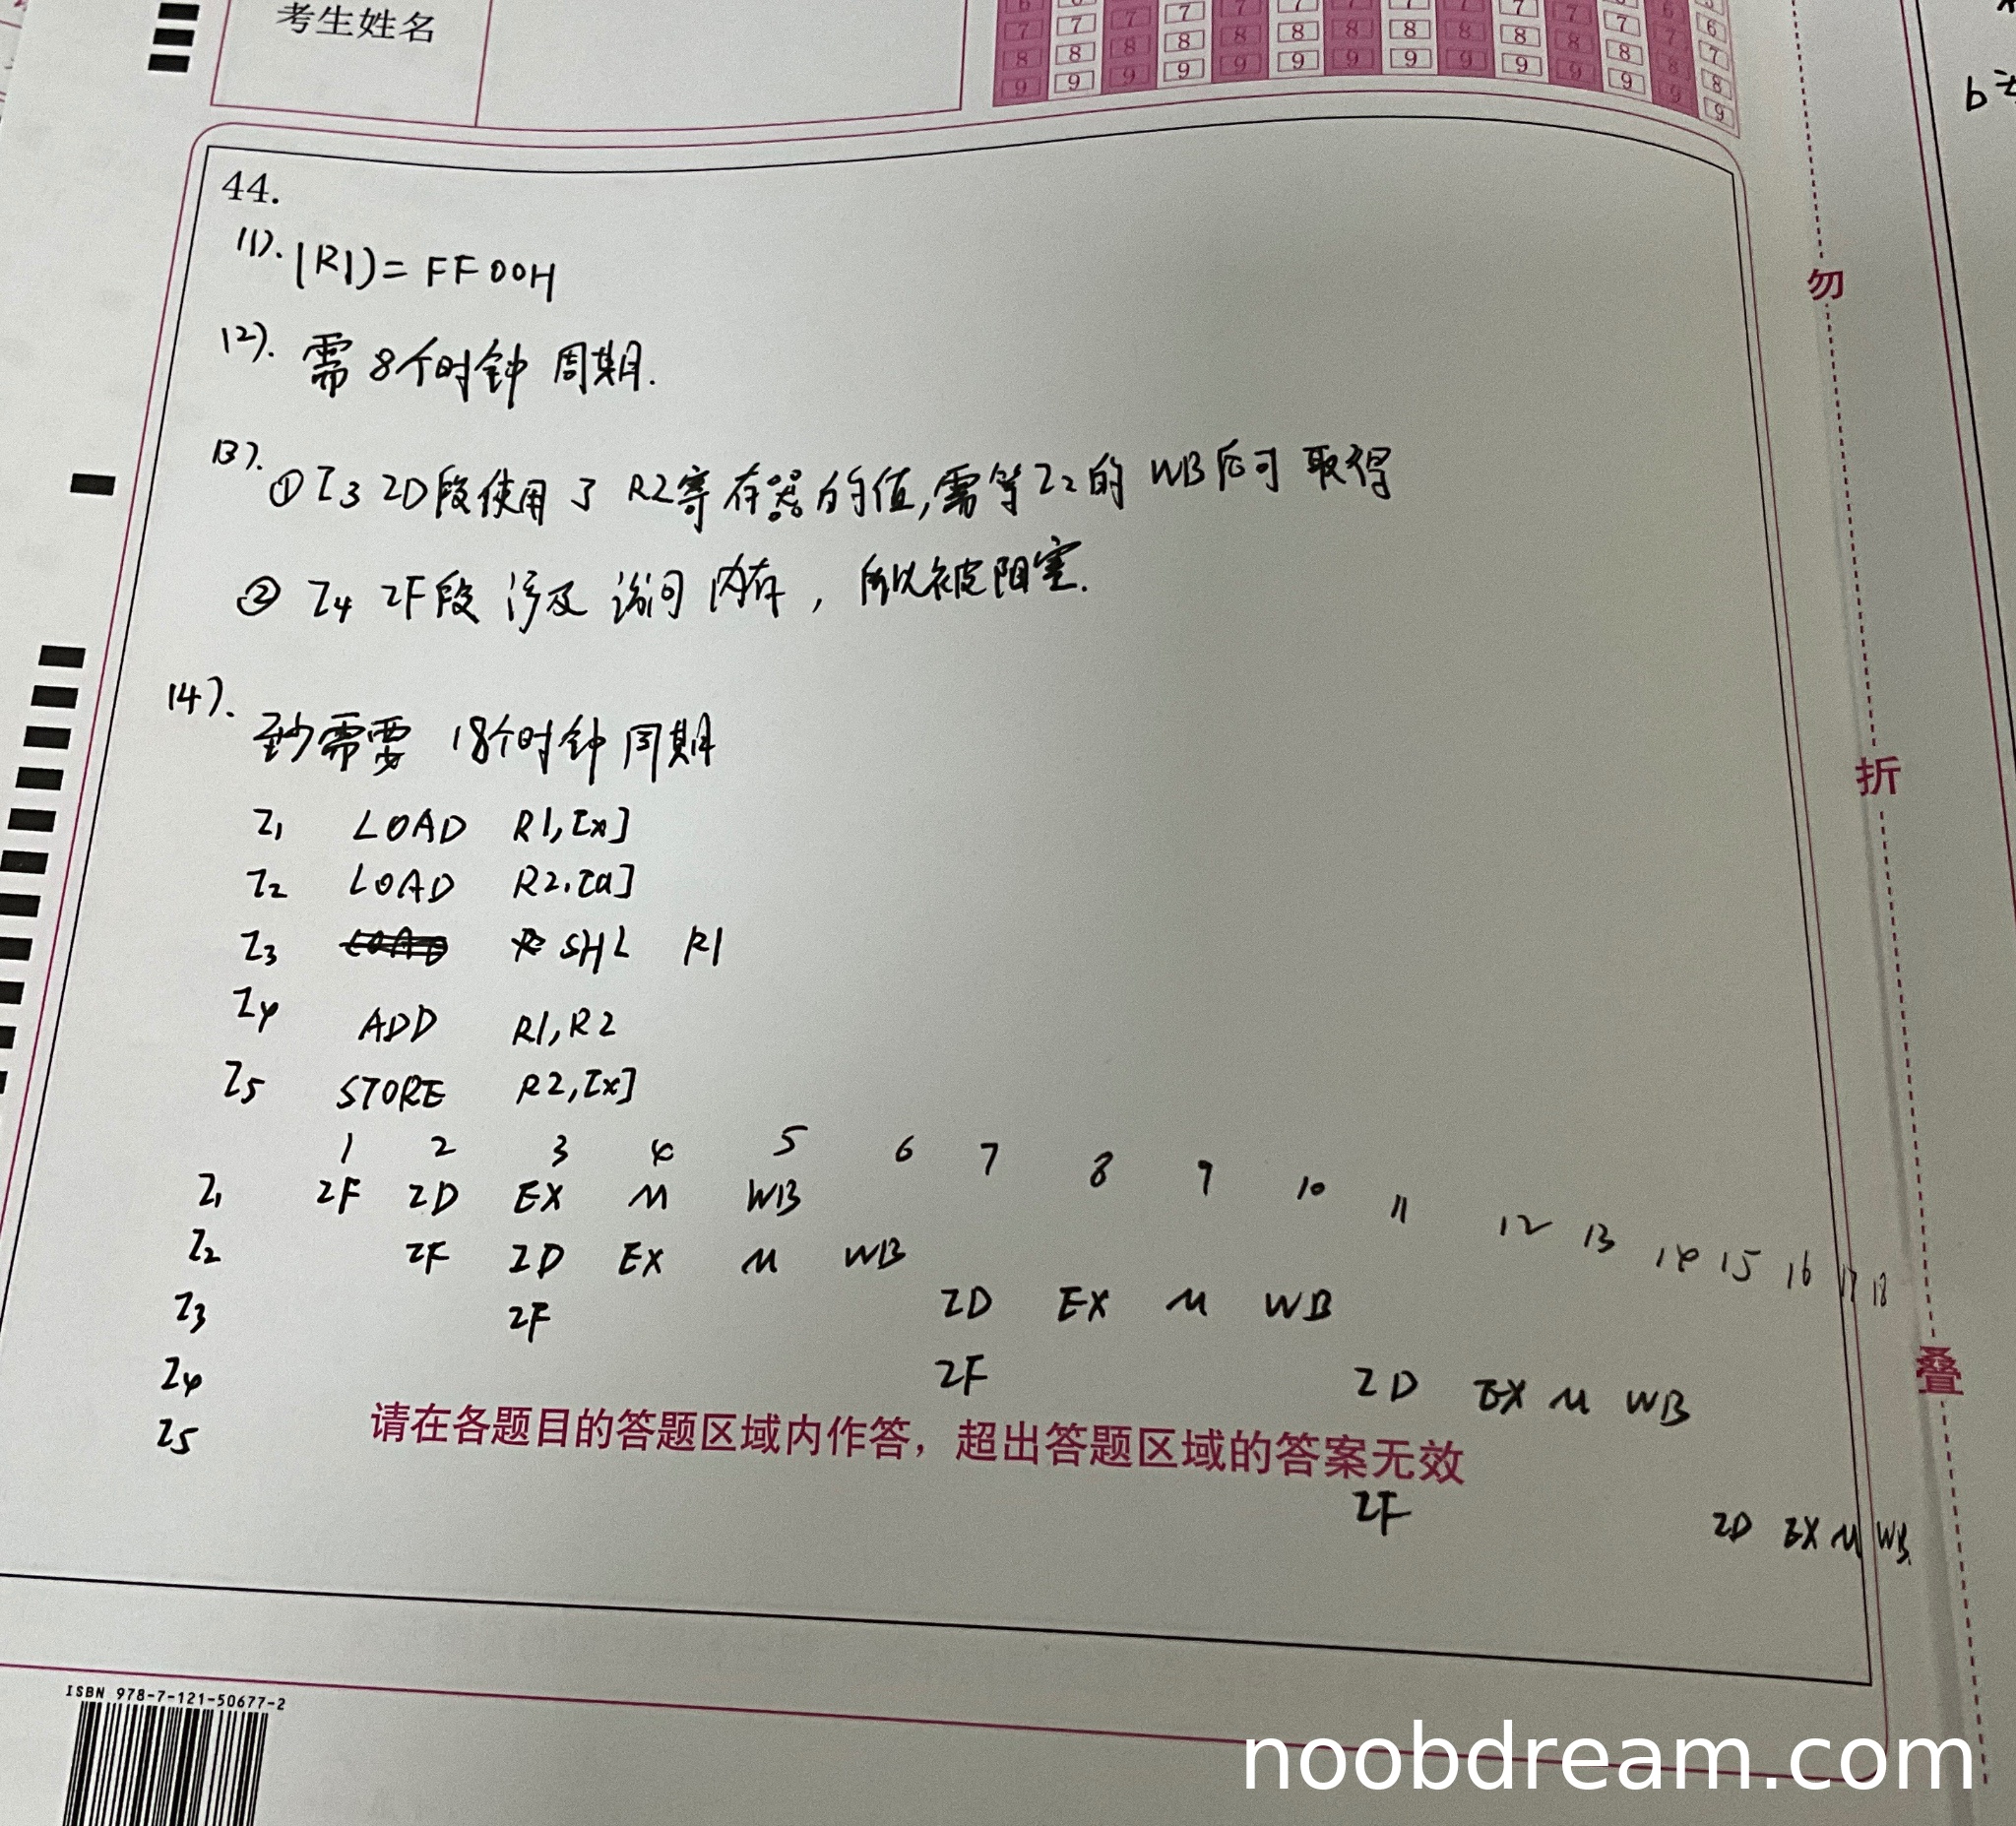 考生姓名
44.
(1). (R1)= FF00H
(2). 需 8个时钟 周期.
(3). ① I3 ID段使用了 R2寄存器的值,需等I2的 WB后可 取得
② I4 IF段 涉及 访问 内存, 所以被阻塞.
(4). 至少需要 18个时钟周期
I1 LOAD R1,[x]
I2 LOAD R2,[a]
I3 SHL R1
I4 ADD R1,R2
I5 STORE R2,[x]
1 2 3 4 5 6 7 8 9 10 11 12 13 14 15 16 17 18
I1 IF ID EX M WB
I2 IF ID EX M WB
I3 IF ID EX M WB
I4 IF ID EX M WB
I5 IF ID EX M WB
请在各题目的答题区域内作答，超出答题区域的答案无效
勿
折
叠
ISBN 978-7-121-50677-2
noobdream.com